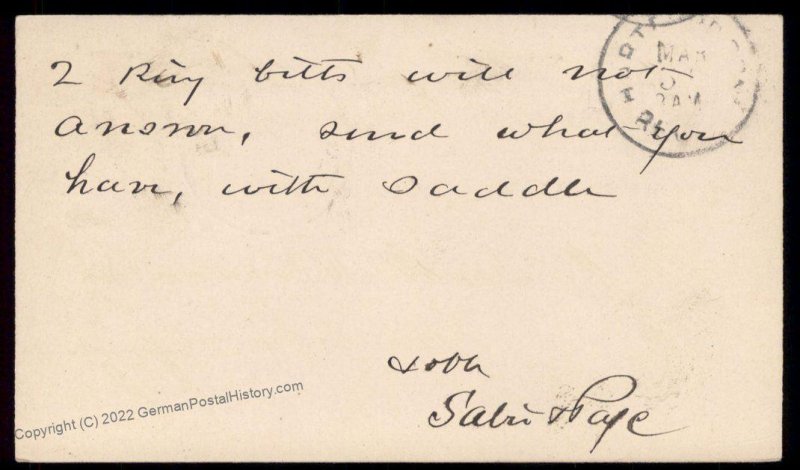 2 Ring bitts will not
answer, send what you
have, with Saddle
MAR
Copyright (C) 2022 GermanPostalHistory.com